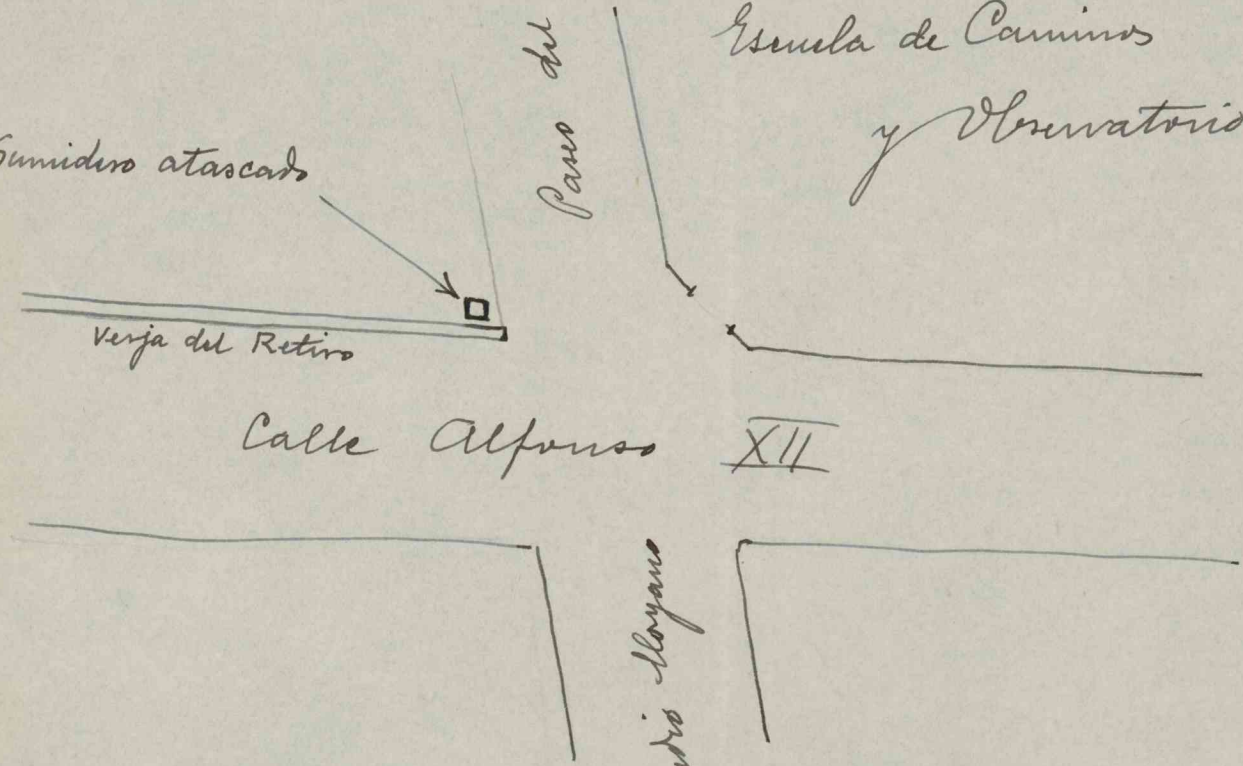 Escuela de Caminos
y Observatorio
Paseo del
Sumidero atascado
Verja del Retiro
Calle Alfonso XII
Moyano